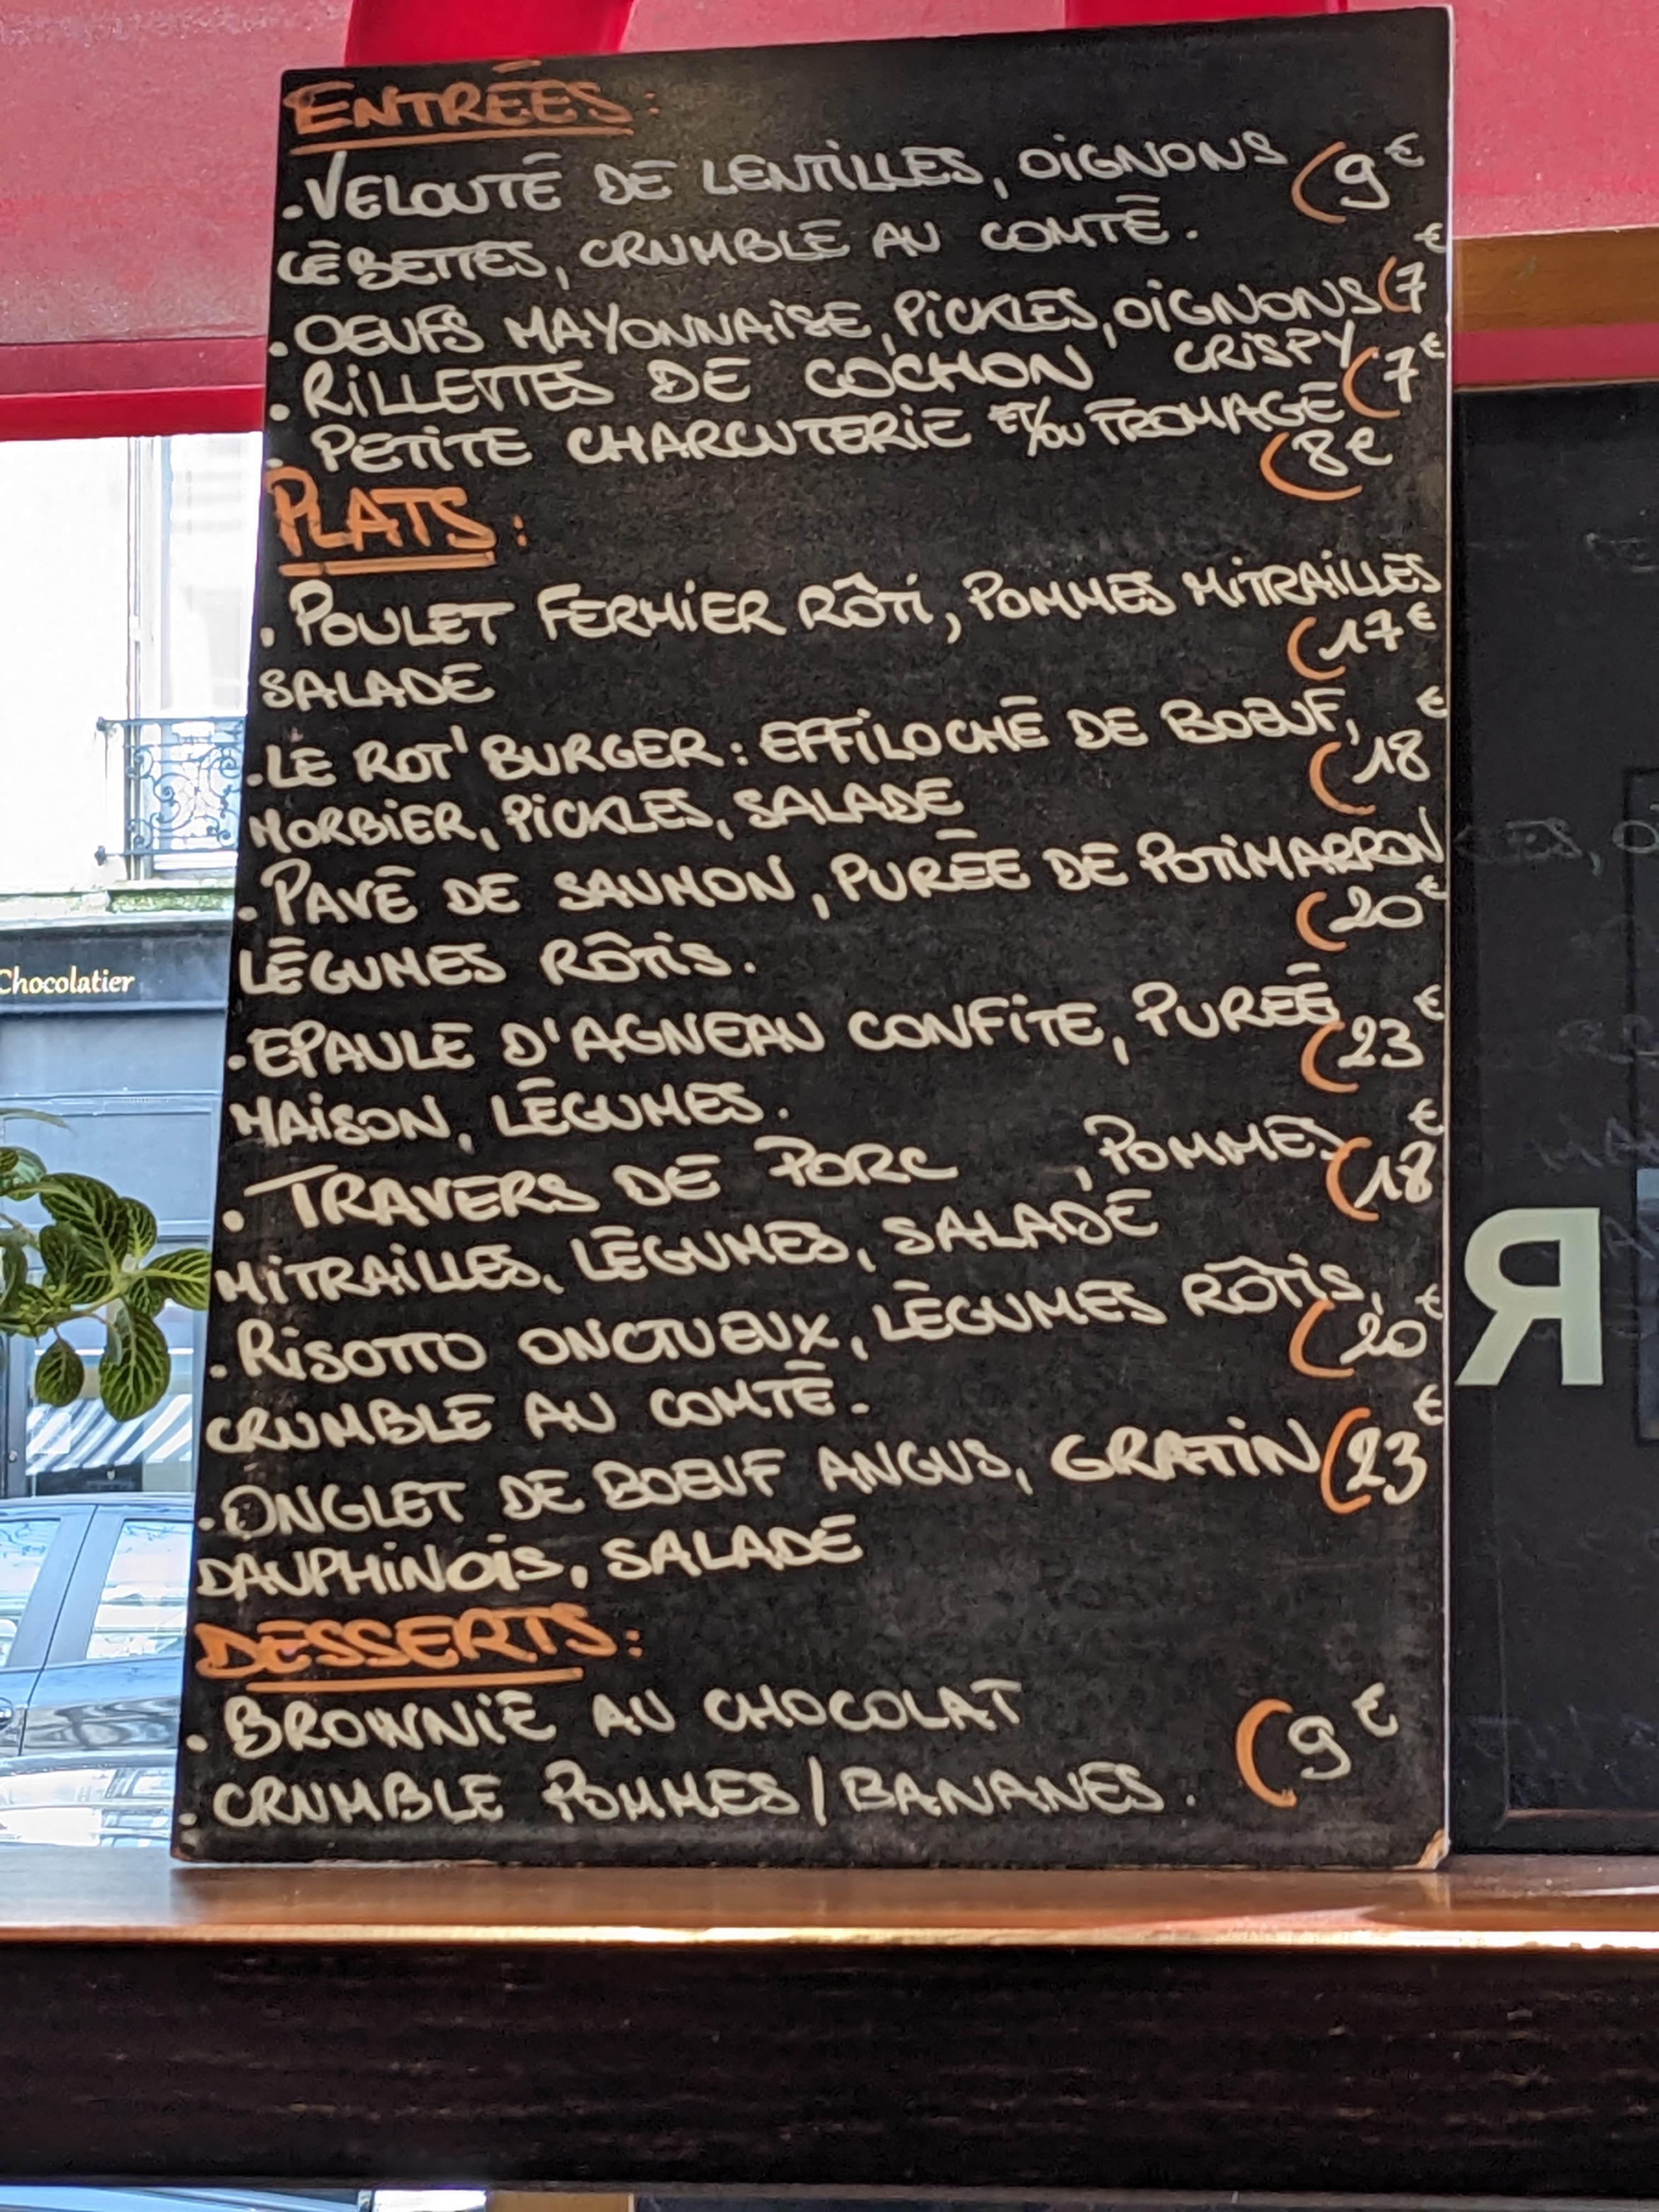 ENTRÉES:
. VELOUTÉ DE LENTILLES, OIGNONS (9€
CÉBETTES, CRUMBLE AU COMTÉ.
. OEUFS MAYONNAISE, PICKLES, OIGNONS (7€
CRISPY.
. RILLETTES DE COCHON (7€
. PETITE CHARCUTERIE ET/OU FROMAGE
(8€
PLATS:
. POULET FERMIER RÔTI, POMMES MITRAILLES
SALADE (17€
. LE ROT'BURGER: EFFILOCHÉ DE BOEUF,
MORBIER, PICKLES, SALADE (18€
. PAVÉ DE SAUMON, PURÉE DE POTIMARRON
LÉGUMES RÔTIS. (20€
. EPAULE D'AGNEAU CONFITE, PURÉE (23€
MAISON, LÉGUMES.
. TRAVERS DE PORC , POMMES (18€
MITRAILLES, LÉGUMES, SALADE
. RISOTTO ONCTUEUX, LÉGUMES RÔTIS, (20€
CRUMBLE AU COMTÉ.
. ONGLET DE BOEUF ANGUS, GRATIN (23€
DAUPHINOIS, SALADE
DESSERTS:
. BROWNIE AU CHOCOLAT (9€
. CRUMBLE POMMES/BANANES.
Chocolatier
R